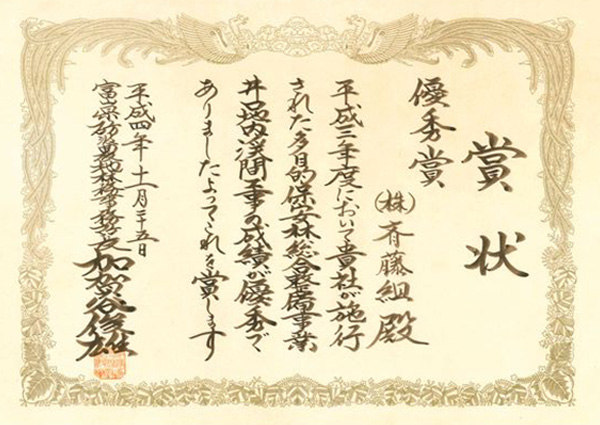 賞状
優秀賞
(株)斉藤組殿
平成三年度において貴社が施行
された多目的保安林総合整備事業
工事の成績が優秀で
ありましたよってこれを賞します
平成四年十一月二十五日
富山県
加賀谷俊雄